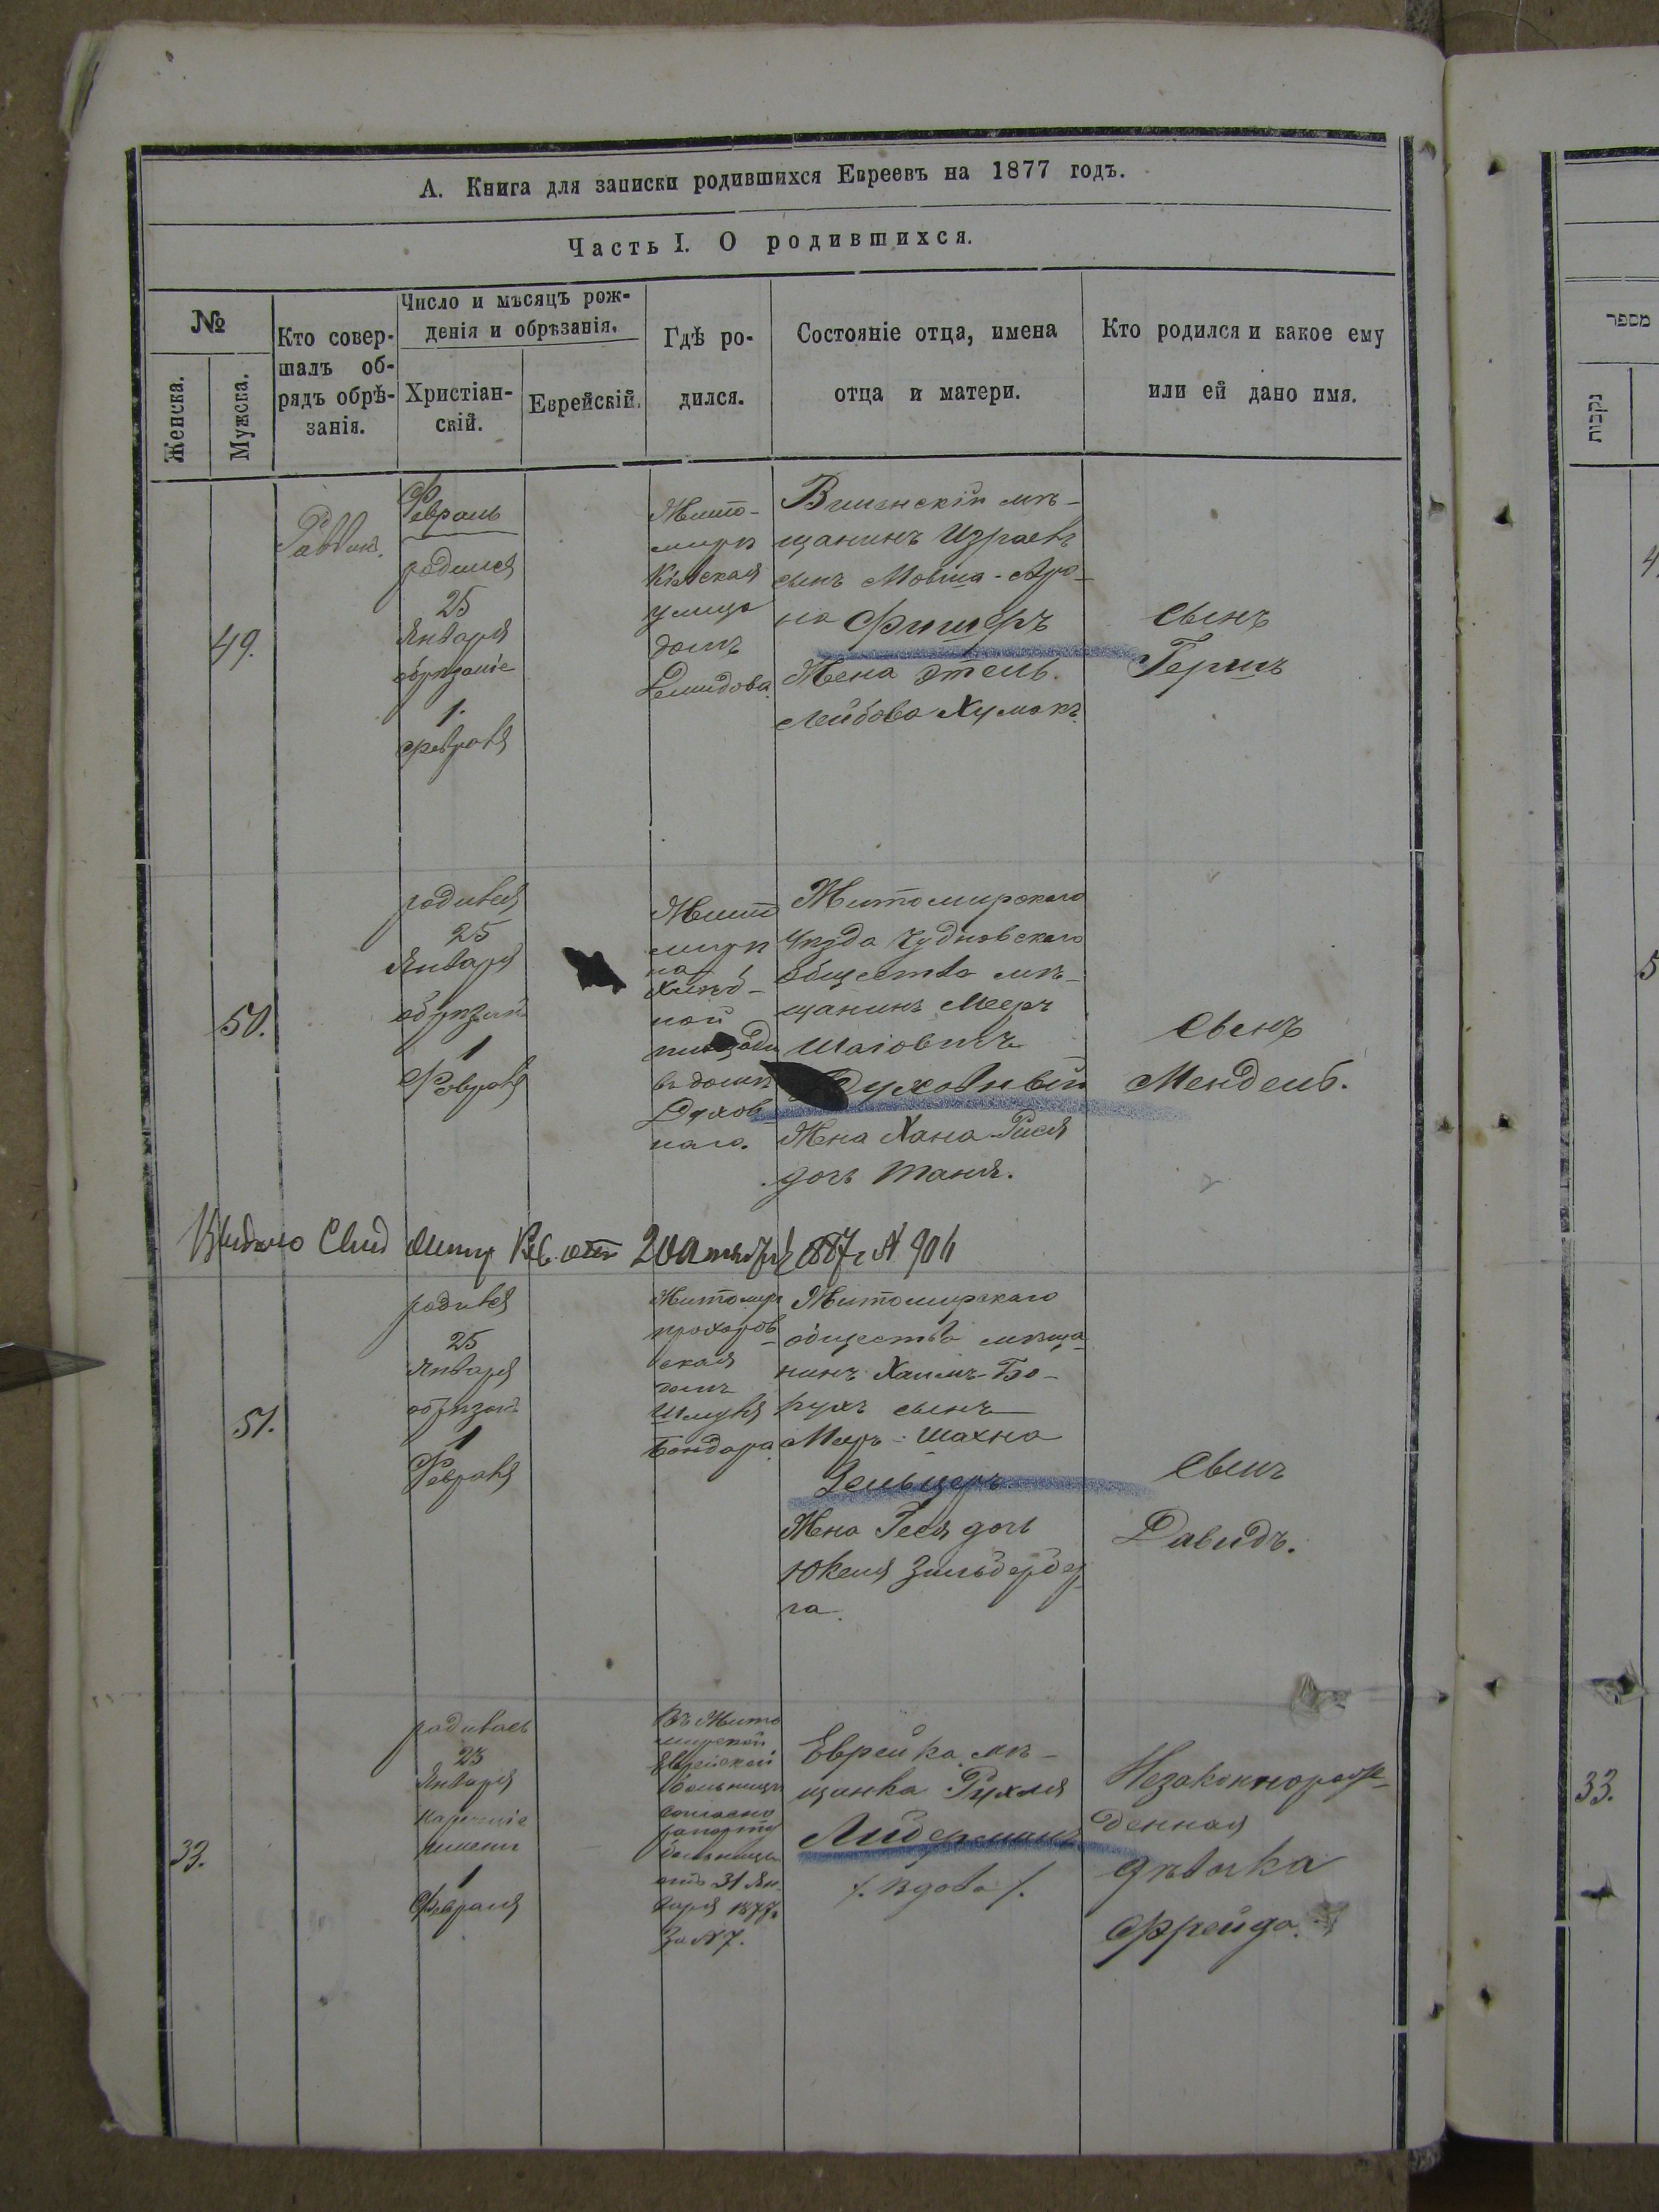 А. Книга для записки родившихся Евреевъ на 1877 годъ.
Часть I. О родившихся.
№
Женска.
Мужска.
Кто совер-
шалъ об-
рядъ обрѣ-
занія.
Число и мѣсяцъ рож-
денія и обрѣзанія.
Христіан-
скій.
Еврейскій.
Гдѣ ро-
дился.
Состояніе отца, имена
отца и матери.
Кто родился и какое ему
или ей дано имя.
49.
Раввинъ.
Февраль
родился
25
Января
обрѣзаніе
1.
Февраля
Жито-
миръ
Кіевская
улица
домъ
Демидова.
мѣ-
щанинъ Израель
сынъ Мовша-Аро-
на Фишеръ
Жена Этель
Лейбова
сынъ
Гершъ
50.
родился
25
Января
обрѣзан
1
Февраля
Жито
миръ
на
Хлѣб-
ной
площади
въ домѣ
Духов
наго.
Житомирскаго
Уѣзда Чудновскаго
общества мѣ-
щанинъ Мееръ
Шаіовичъ
Духовный
Жена Хана-Рися
дочь Таня.
Сынъ
Мендель.
Выдано Свид
51.
родился
25
Января
обрѣзан
1
Февраля
Житомиръ
прохоров
ская
домъ
Шмуля
Бондара.
Житомирскаго
общества мѣща
нинъ Хаимъ-Бо-
рухъ сынъ
Меръ-Шахна
Зельцеръ
Жена Геся дочь
Юкеля Зильбербер
га.
Сынъ
Давидъ.
33.
родилась
23
Января
нареченіе
имени
1
Февраля
Въ Жито
мирской
Еврейской
больницѣ
согласно
рапорту
больницы
отъ 31 Ян-
варя 1877г.
За № 7.
Еврейка мѣ-
щанка Рухля
Лидерманъ
/. вдова /.
Незаконнорож-
денная
дѣвочка
Фрейда.
מספר
נקבות
33.